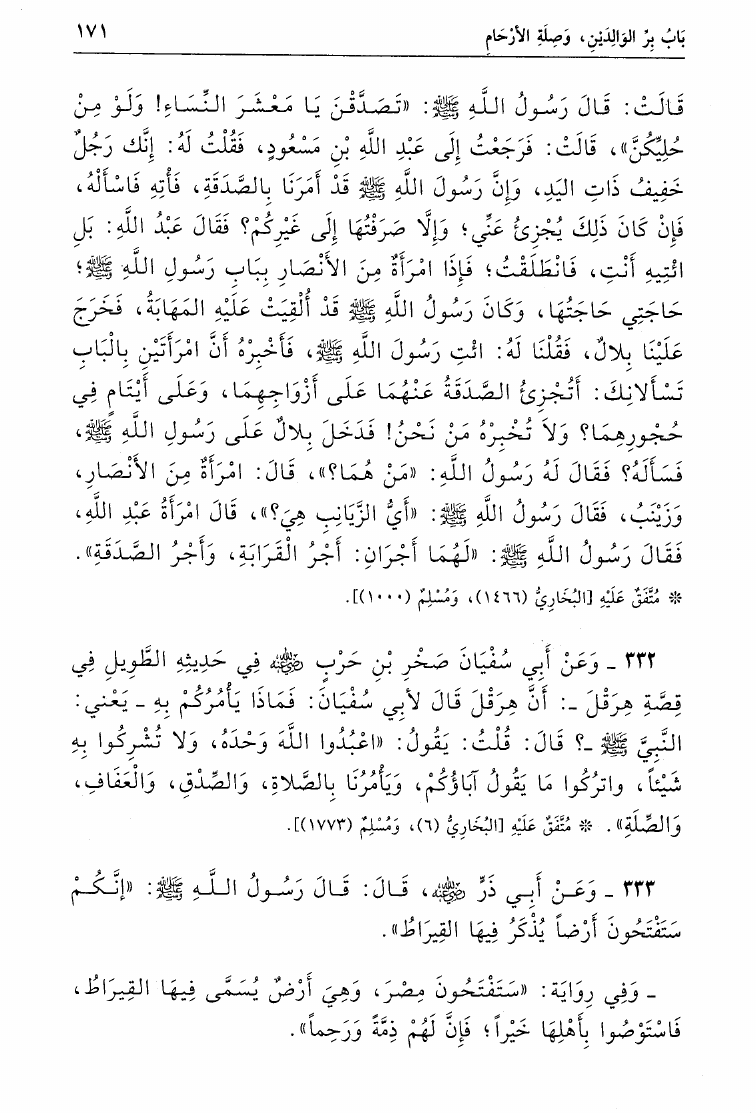 بَابُ بِرِّ الوَالِدَيْنِ، وَصِلَةِ الأرْحَامِ
١٧١
قَالَتْ: قَالَ رَسُولُ اللَّهِ ﷺ: «تَصَدَّقْنَ يَا مَعْشَرَ النِّسَاءِ! وَلَوْ مِنْ
حُلِيِّكُنَّ»، قَالَتْ: فَرَجَعْتُ إِلَى عَبْدِ اللَّهِ بْنِ مَسْعُودٍ، فَقُلْتُ لَهُ: إِنَّك رَجُلٌ
خَفِيفُ ذَاتِ اليَدِ، وَإِنَّ رَسُولَ اللَّهِ ﷺ قَدْ أَمَرَنَا بِالصَّدَقَةِ، فَأْتِهِ فَاسْأَلْهُ،
فَإِنْ كَانَ ذَلِكَ يُجْزِئُ عَنِّي؛ وَإِلَّا صَرَفْتُهَا إِلَى غَيْرِكُمْ؟ فَقَالَ عَبْدُ اللَّهِ: بَلِ
ائْتِيهِ أَنْتِ، فَانْطَلَقْتُ؛ فَإِذَا امْرَأَةٌ مِنَ الأنْصَارِ بِبَابِ رَسُولِ اللَّهِ ﷺ؛
حَاجَتِي حَاجَتُهَا، وَكَانَ رَسُولُ اللَّهِ ﷺ قَدْ أُلْقِيَتْ عَلَيْهِ المَهَابَةُ، فَخَرَجَ
عَلَيْنَا بِلالٌ، فَقُلْنَا لَهُ: ائْتِ رَسُولَ اللَّهِ ﷺ، فَأَخْبِرْهُ أَنَّ امْرَأَتَيْنِ بِالْبَابِ
تَسْأَلانِكَ: أَتُجْزِئُ الصَّدَقَةُ عَنْهُمَا عَلَى أَزْوَاجِهِمَا، وَعَلَى أَيْتَامٍ فِي
حُجُورِهِمَا؟ وَلاَ تُخْبِرْهُ مَنْ نَحْنُ! فَدَخَلَ بِلالٌ عَلَى رَسُولِ اللَّهِ ﷺ،
فَسَأَلَهُ؟ فَقَالَ لَهُ رَسُولُ اللَّهِ: «مَنْ هُمَا؟»، قَالَ: امْرَأَةٌ مِنَ الأنْصَارِ،
وَزَيْنَبُ، فَقَالَ رَسُولُ اللَّهِ ﷺ: «أَيُّ الزَّيَانِبِ هِيَ؟»، قَالَ امْرَأَةُ عَبْدِ اللَّهِ،
فَقَالَ رَسُولُ اللَّهِ ﷺ: «لَهُمَا أَجْرَانِ: أَجْرُ الْقَرَابَةِ، وَأَجْرُ الصَّدَقَةِ».
* مُتَّفَقٌ عَلَيْهِ [البُخَارِيُّ (١٤٦٦)، وَمُسْلِمٌ (١٠٠٠)].
٣٣٢ ـ وَعَنْ أَبِي سُفْيَانَ صَخْرِ بْنِ حَرْبٍ رضي الله عنه فِي حَدِيثِهِ الطَّوِيلِ فِي
قِصَّةِ هِرَقْلَ ـ: أَنَّ هِرَقْلَ قَالَ لأبِي سُفْيَانَ: فَمَاذَا يَأْمُرُكُمْ بِهِ ـ يَعْنِي:
النَّبِيَّ ﷺ ـ؟ قَالَ: قُلْتُ: يَقُولُ: «اعْبُدُوا اللَّهَ وَحْدَهُ، وَلا تُشْرِكُوا بِهِ
شَيْئاً، واتْرُكُوا مَا يَقُولُ آبَاؤُكُمْ، وَيَأْمُرُنَا بِالصَّلاةِ، وَالصِّدْقِ، وَالْعَفَافِ،
وَالصِّلَةِ». * مُتَّفَقٌ عَلَيْهِ [البُخَارِيُّ (٦)، وَمُسْلِمٌ (١٧٧٣)].
٣٣٣ ـ وَعَنْ أَبِي ذَرٍّ رضي الله عنه، قَالَ: قَالَ رَسُولُ اللَّهِ ﷺ: «إِنَّكُمْ
سَتَفْتَحُونَ أَرْضاً يُذْكَرُ فِيهَا القِيرَاطُ».
ـ وَفِي رِوَايَة: «سَتَفْتَحُونَ مِصْرَ، وَهِيَ أَرْضٌ يُسَمَّى فِيهَا القِيرَاطُ،
فَاسْتَوْصُوا بِأَهْلِهَا خَيْراً؛ فَإِنَّ لَهُمْ ذِمَّةً وَرَحِماً».